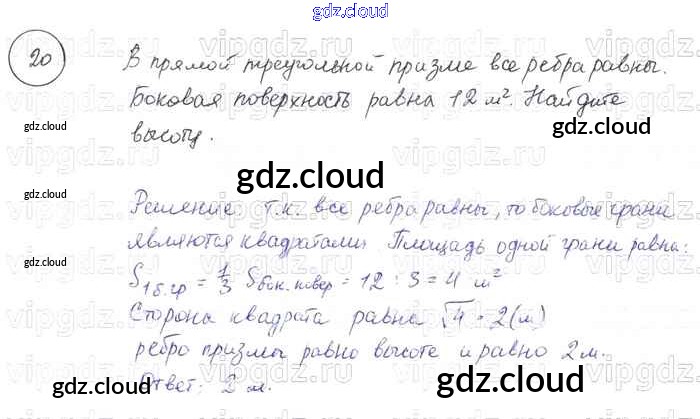 gdz.cloud
20 В прямой треугольной призме все ребра равны.
Боковая поверхность равна 12 м². Найдите
высоту.
gdz.cloud
gdz.cloud
gdz.cloud
gdz.cloud
Решение т.к. все ребра равны, то боковые грани
являются квадратами Площадь одной грани равна:
S1б.гр = 1/3 Sбок.повер = 12 : 3 = 4 м²
Сторона квадрата равна √4 = 2 (м)
ребро призмы равно высоте и равно 2 м.
Ответ: 2 м.
gdz.cloud
gdz.cloud
gdz.cloud
gdz.cloud
gdz.cloud